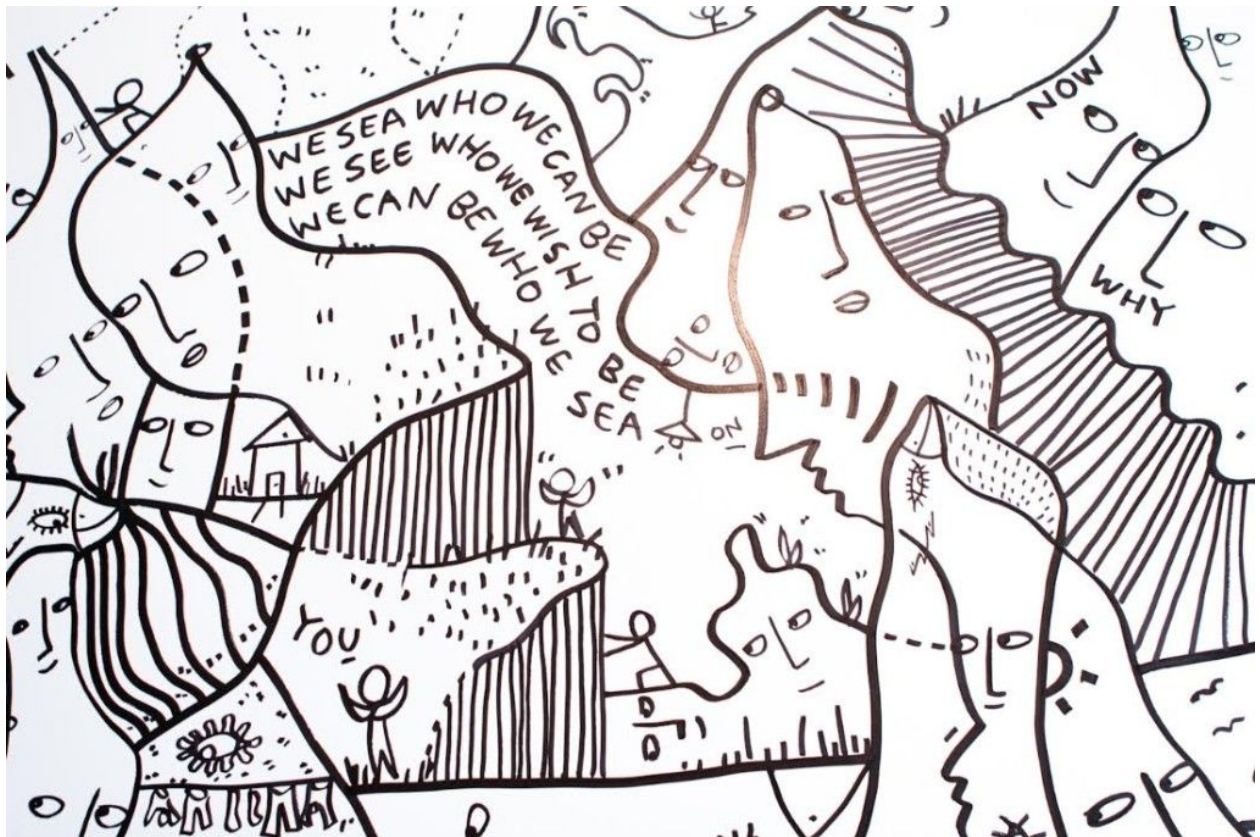 WE SEA WHO WE CAN BE
WE SEE WHO WE WISH TO BE
WE CAN BE WHO WE SEA
ON
NOW
WHY
YOU